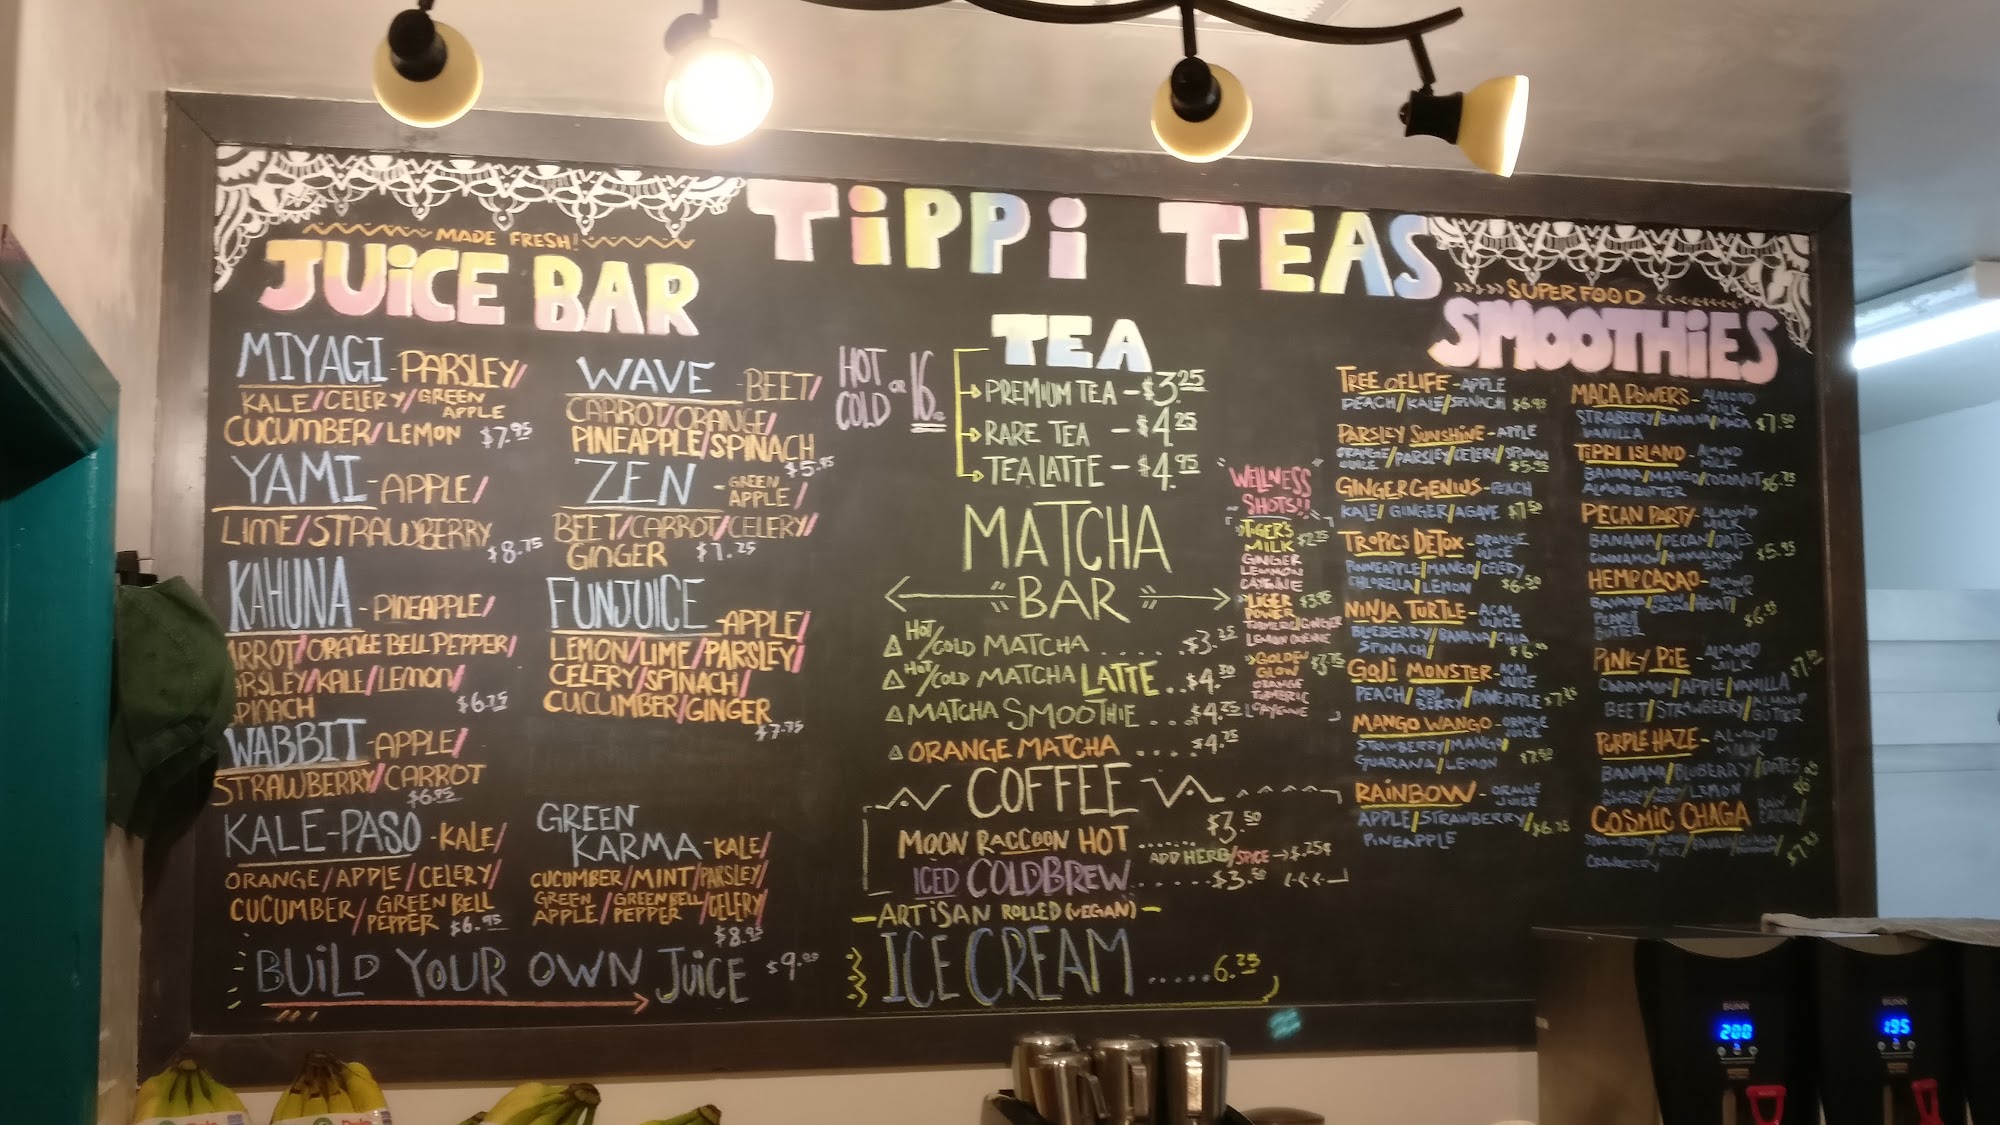 TiPPi TEAS
MADE FRESH!
JUiCE BAR
MIYAGI - PARSLEY/
KALE/CELERY/GREEN APPLE
CUCUMBER/LEMON $7.95
YAMI - APPLE/
LIME/STRAWBERRY $8.75
KAHUNA - PINEAPPLE/
ARROT/ORANGE BELL PEPPER/
ARSLEY/KALE/LEMON/
SPINACH $6.75
WABBIT - APPLE/
STRAWBERRY/CARROT
$6.95
KALE-PASO - KALE/
ORANGE/APPLE/CELERY/
CUCUMBER/GREEN BELL PEPPER $6.95
WAVE - BEET/
CARROT/ORANGE/
PINEAPPLE/SPINACH
$5.95
ZEN - GREEN APPLE/
BEET/CARROT/CELERY/
GINGER $7.25
FUNJUICE - APPLE/
LEMON/LIME/PARSLEY/
CELERY/SPINACH/
CUCUMBER/GINGER
$7.75
GREEN
KARMA - KALE/
CUCUMBER/MINT/PARSLEY/
GREEN APPLE/GREEN BELL PEPPER/CELERY/
$8.95
BUiLD YOUR OWN JUiCE $9.95
TEA
HOT OR COLD 16oz
PREMIUM TEA - $3.25
RARE TEA - $4.25
TEA LATTE - $4.95
MATCHA
BAR
HOT/COLD MATCHA . . . . . $3.25
HOT/COLD MATCHA LATTE . . $4.50
MATCHA SMOOTHiE . . . $4.75
ORANGE MATCHA . . . . $4.75
COFFEE
$3.50
MOON RACCOON HOT ......
ADD HERB/SPICE → $.25¢
ICED COLDBREW ...... $3.50
- ARTiSAN ROLLED (VEGAN) -
ICE CREAM ..... 6.25
"WELLNESS
SHOTS!!"
TIGER'S
MILK $2.75
GINGER
LEMMON
CAYENNE
LIGER $3.75
POWER
TURMERIC/GINGER
GOLDEN $3.75
GLOW
ORANGE
TURMERIC
CAYENNE
SUPERFOOD
SMOOTHiES
TREE OF LIFE - APPLE
PEACH/KALE/SPINACH $6.95
PARSLEY SUNSHINE - APPLE
ORANGE JUICE/PARSLEY/CELERY/SPINACH
$5.95
GINGER GENIUS - PEACH
KALE/GINGER/AGAVE $7.50
TROPICS DETOX - ORANGE JUICE
PINNEAPPLE/MANGO/CELERY
CHLORELLA/LEMON $6.50
NINJA TURTLE - ACAI JUICE
BLUEBERRY/BANANA/CHIA
SPINACH/
GOJI MONSTER - ACAI JUICE
PEACH/GOJI BERRY/PINEAPPLE $7.25
MANGO WANGO - ORANGE JUICE
STRAWBERRY/MANGO/
GUARANA/LEMON $7.50
RAiNBOW - ORANGE JUICE
APPLE/STRAWBERRY/ $6.75
PiNEAPPLE
MACA POWERS - ALMOND MILK
STRABERRY/BANANA/MACA $7.50
VANILLA
TiPPI ISLAND - ALMOND MILK
BANANA/MANGO/COCONUT
ALMOND BUTTER
PECAN PARTY - ALMOND MILK
BANANA/PECAN/DATES
CINNAMON/HIMALAYAN SALT $5.95
HEMP CACAO - ALMOND MILK
BANANA/RAW CACAO/HEMP/
PEANUT BUTTER
PINKY PiE - ALMOND MILK $7.50
CINNAMON/APPLE/VANILLA
BEET/STRAWBERRY/ALMOND BUTTER
PURPLE HAZE - ALMOND MILK
BANANA/BLUBERRY/DATES
LEMON
COSMIC CHAGA
CRANBERRY
BUNN
200
BUNN
195